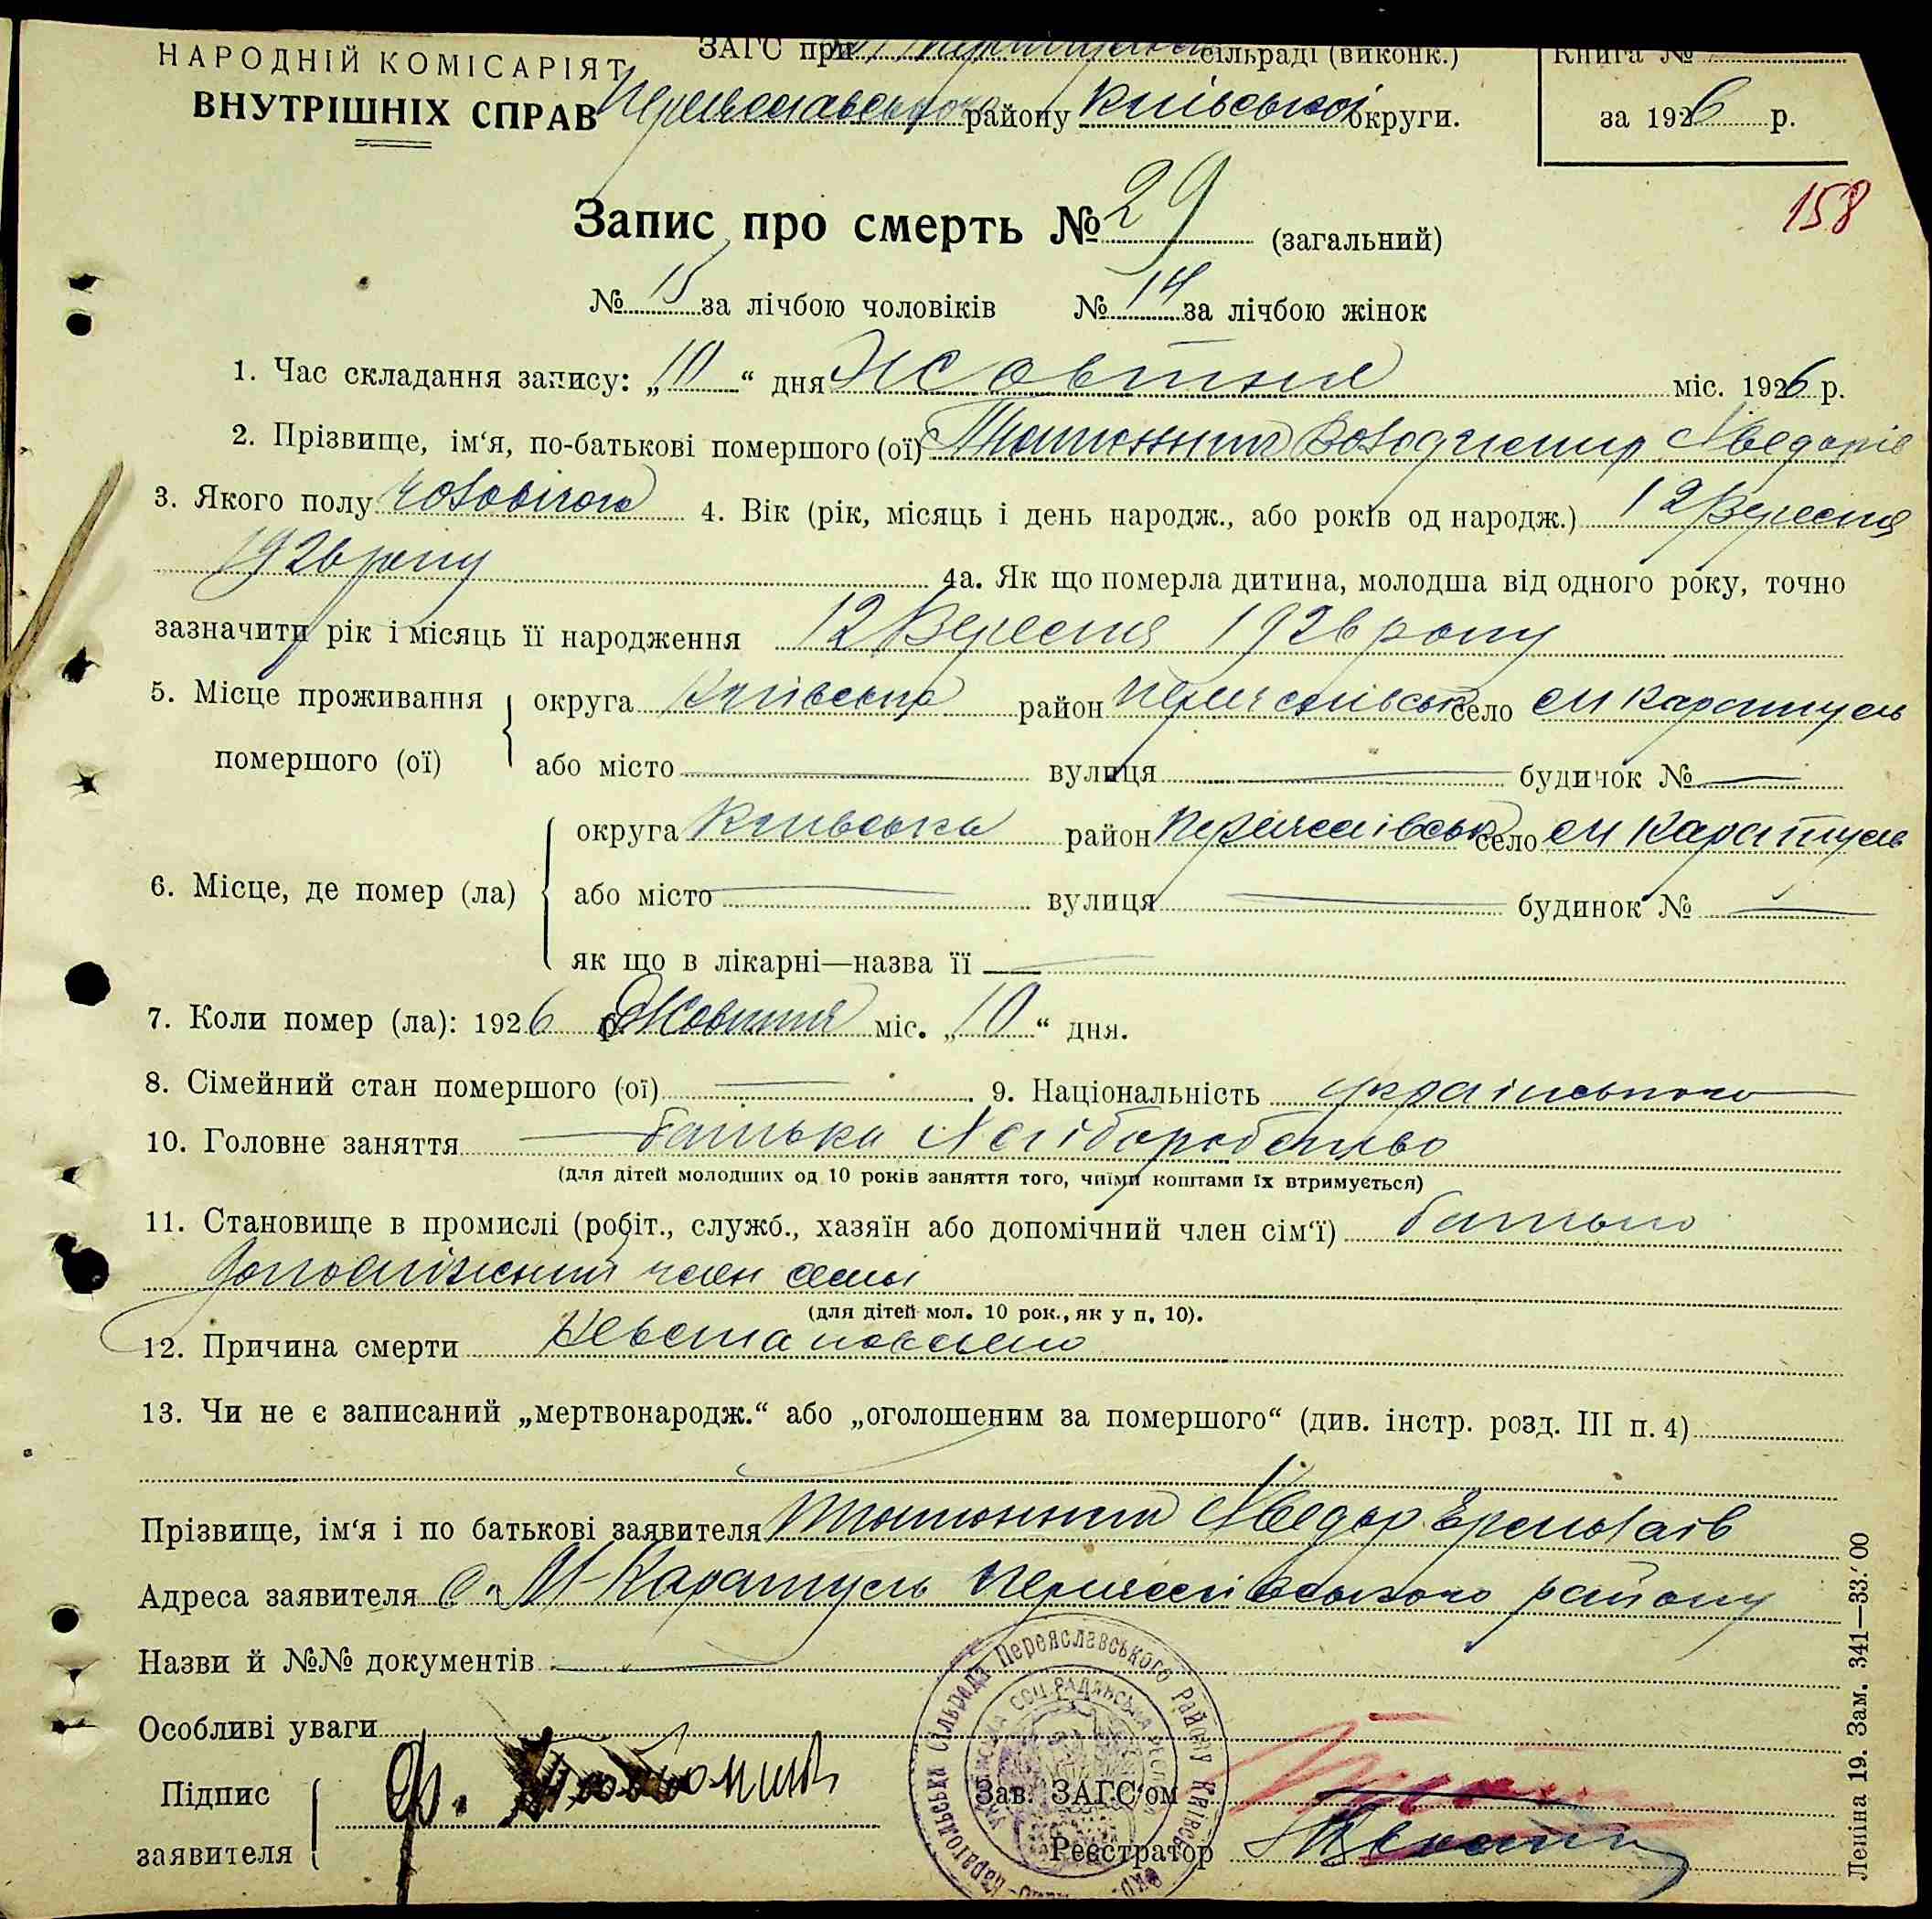 НАРОДНІЙ КОМІСАРІЯТ
ВНУТРІШНІХ СПРАВ
ЗАГС при сільраді (виконк.)
району Київської округи.
Книга №
за 1926 р.
158
Запис про смерть № 29 (загальний)
№ 15 за лічбою чоловіків № 14 за лічбою жінок
1. Час складання запису: „10“ дня Жовтня міс. 1926 р.
2. Прізвище, ім‘я, по-батькові помершого (ої) Володимир
3. Якого полу 4. Вік (рік, місяць і день народж., або років од народж.) 12 Вересня
1926 року 4а. Як що померла дитина, молодша від одного року, точно
зазначити рік і місяць її народження 12 Вересня 1926 року
5. Місце проживання помершого (ої) округа Київська район село м Каратуль
або місто — вулиця — будинок № —
6. Місце, де помер (ла) округа Київська район село м Каратуль
або місто — вулиця — будинок № —
як що в лікарні—назва її —
7. Коли помер (ла): 1926 р. Жовтня міс. „10“ дня.
8. Сімейний стан помершого (ої) — 9. Національність
10. Головне заняття батька Хліборобство
(для дітей молодших од 10 років заняття того, чиїми коштами їх втримується)
11. Становище в промислі (робіт., служб., хазяїн або допомічний член сім‘ї) батько
член
(для дітей мол. 10 рок., як у п. 10).
12. Причина смерти Невстановлено
13. Чи не є записаний „мертвонародж.“ або „оголошеним за помершого“ (див. інстр. розд. III п. 4)
Прізвище, ім‘я і по батькові заявителя
Адреса заявителя с. М-Каратуль району
Назви й №№ документів —
Особливі уваги
Підпис
заявителя
Зав. ЗАГС‘ом
Реєстратор
Сільрада Переяславського Району
Леніна 19. Зам. 341—33.'00